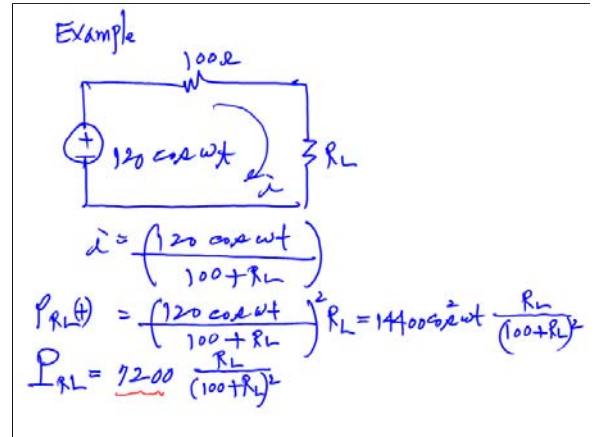 Example
100Ω
+
120 cos ωt
RL
i
i = (120 cos ωt / 100 + RL)
PRL(t) = (120 cos ωt / 100 + RL)² RL = 14400 cos² ωt RL / (100+RL)²
PRL = 7200 RL / (100+RL)²